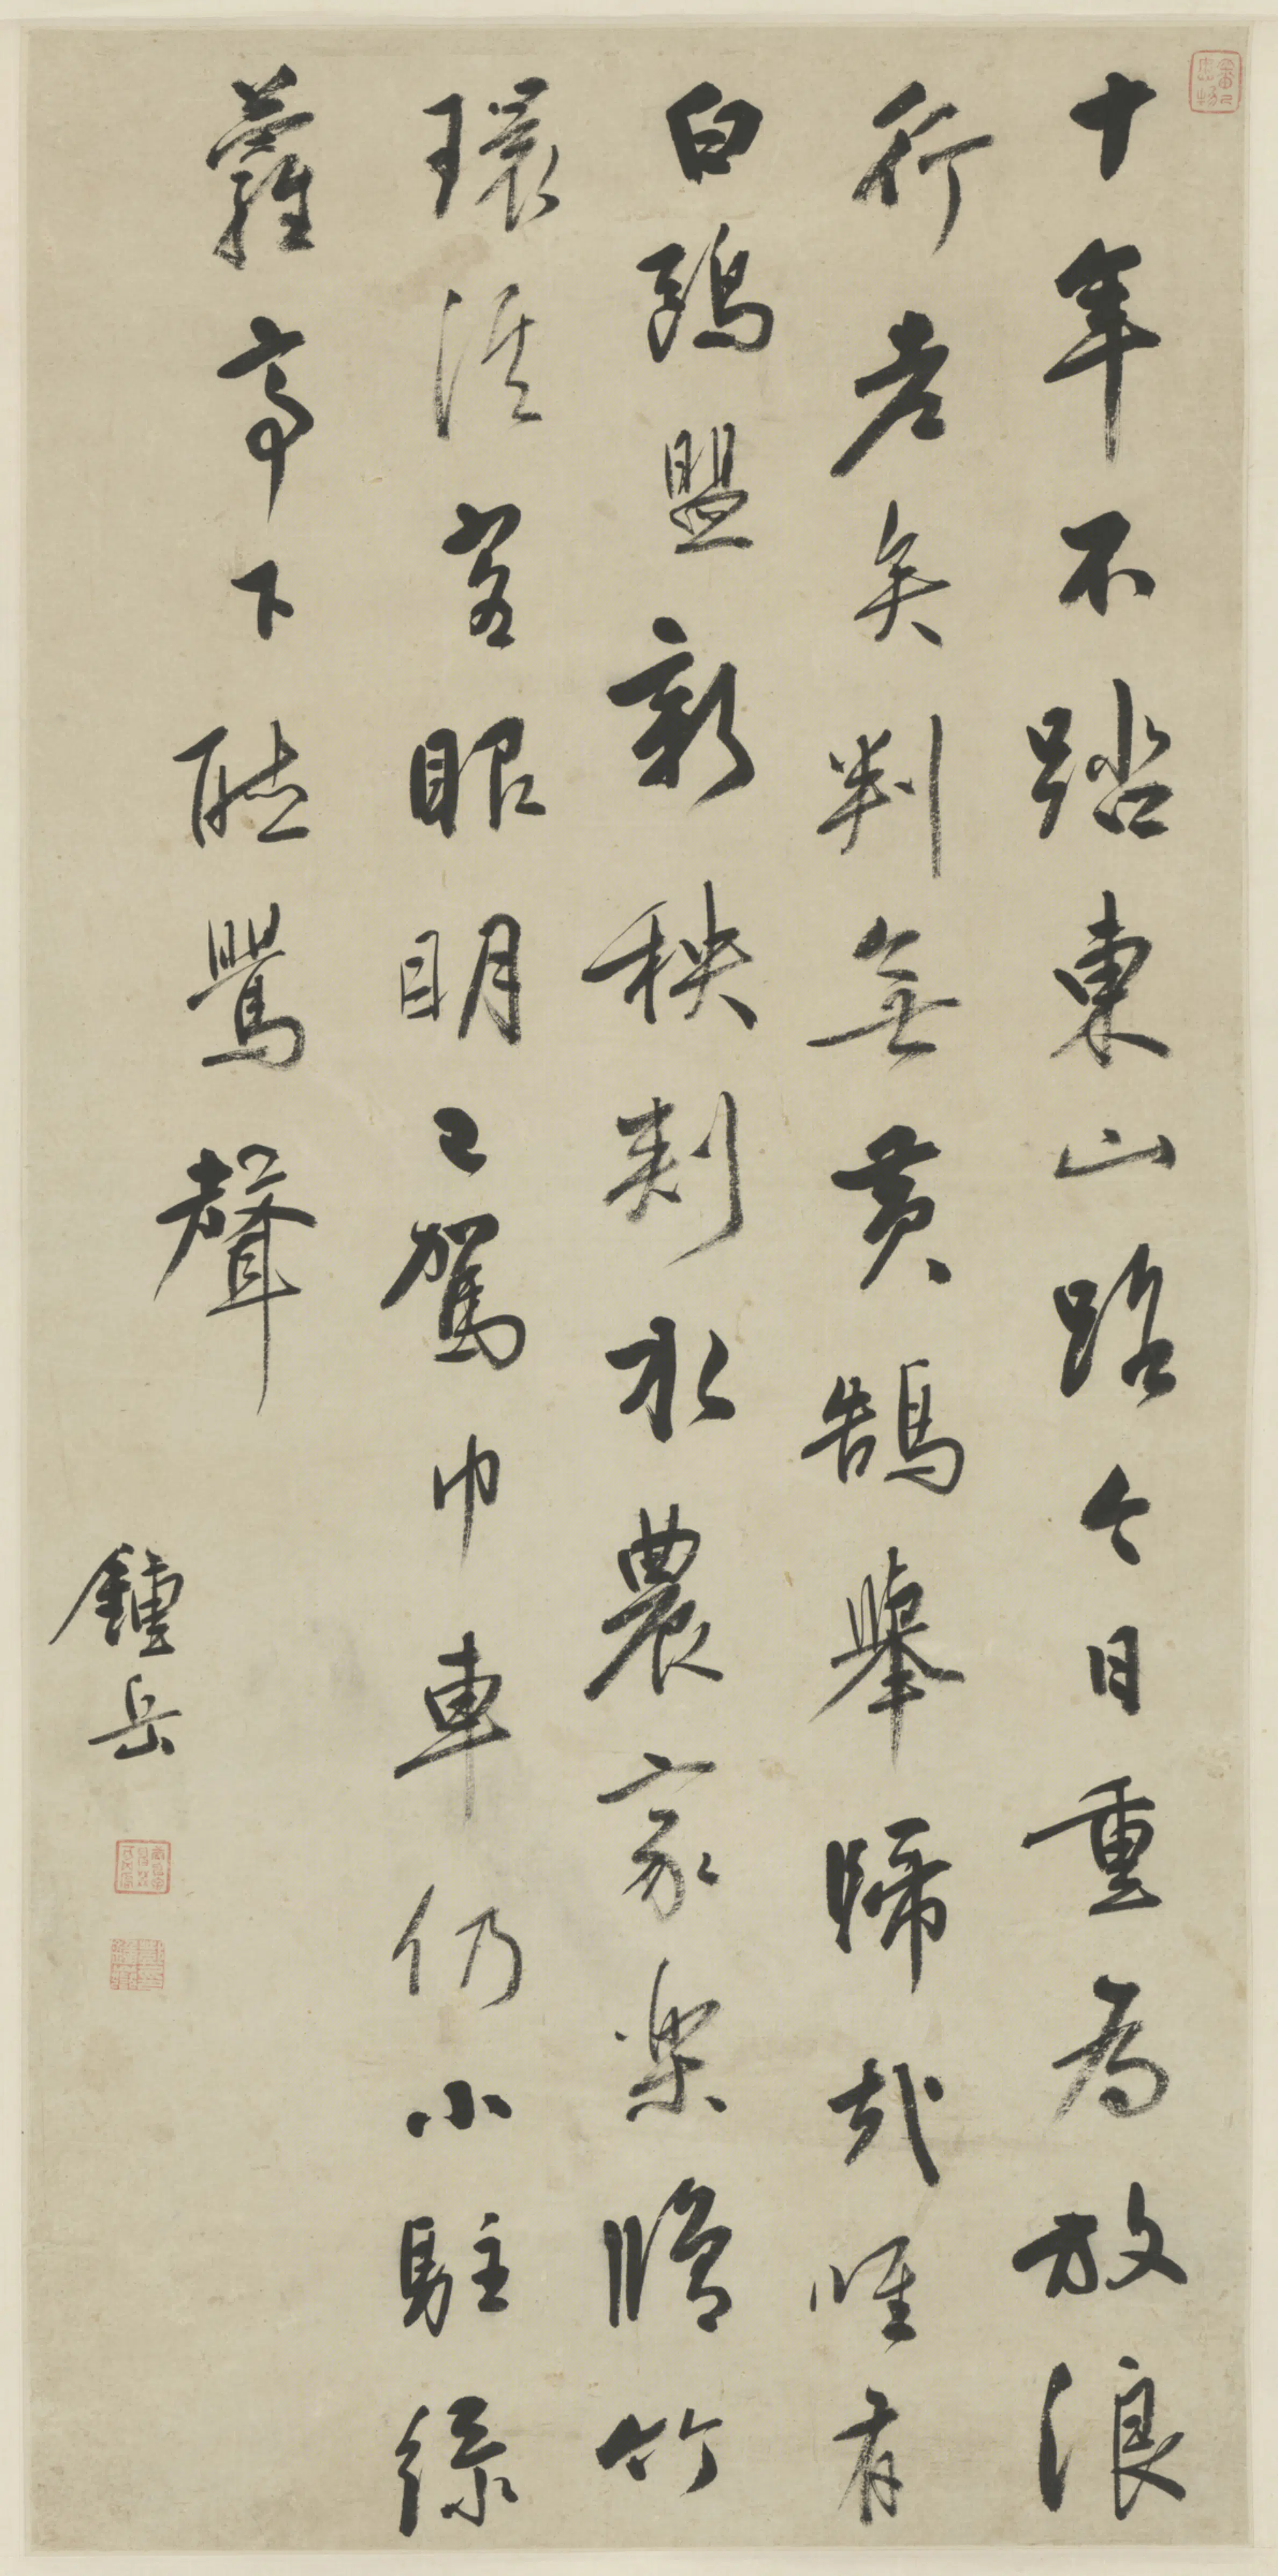 十年不踏東山路今日重為放浪
行老矣判無黃鵠舉歸哉唯有
白鷗盟新秧刺水農家樂脩竹
環溪客眼明已駕巾車仍小駐綠
蘿亭下聽鶯聲
鍾岳